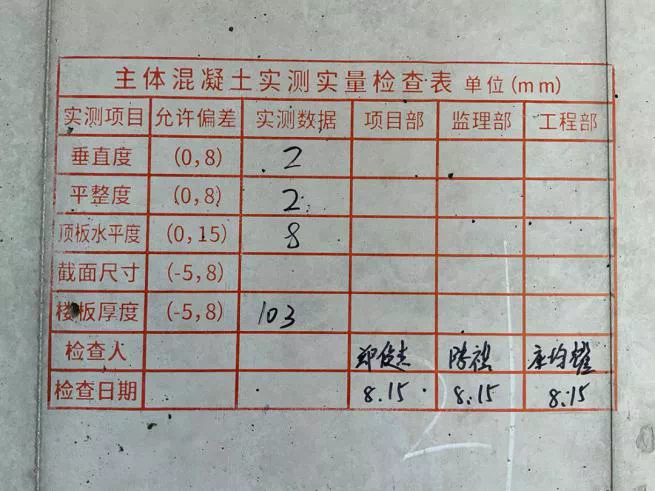 主体混凝土实测实量检查表 单位(mm)
实测项目 允许偏差 实测数据 项目部 监理部 工程部
垂直度 (0,8) 2
平整度 (0,8) 2
顶板水平度 (0,15) 8
截面尺寸 (-5,8)
楼板厚度 (-5,8) 103
检查人
检查日期 8.15 8.15 8.15